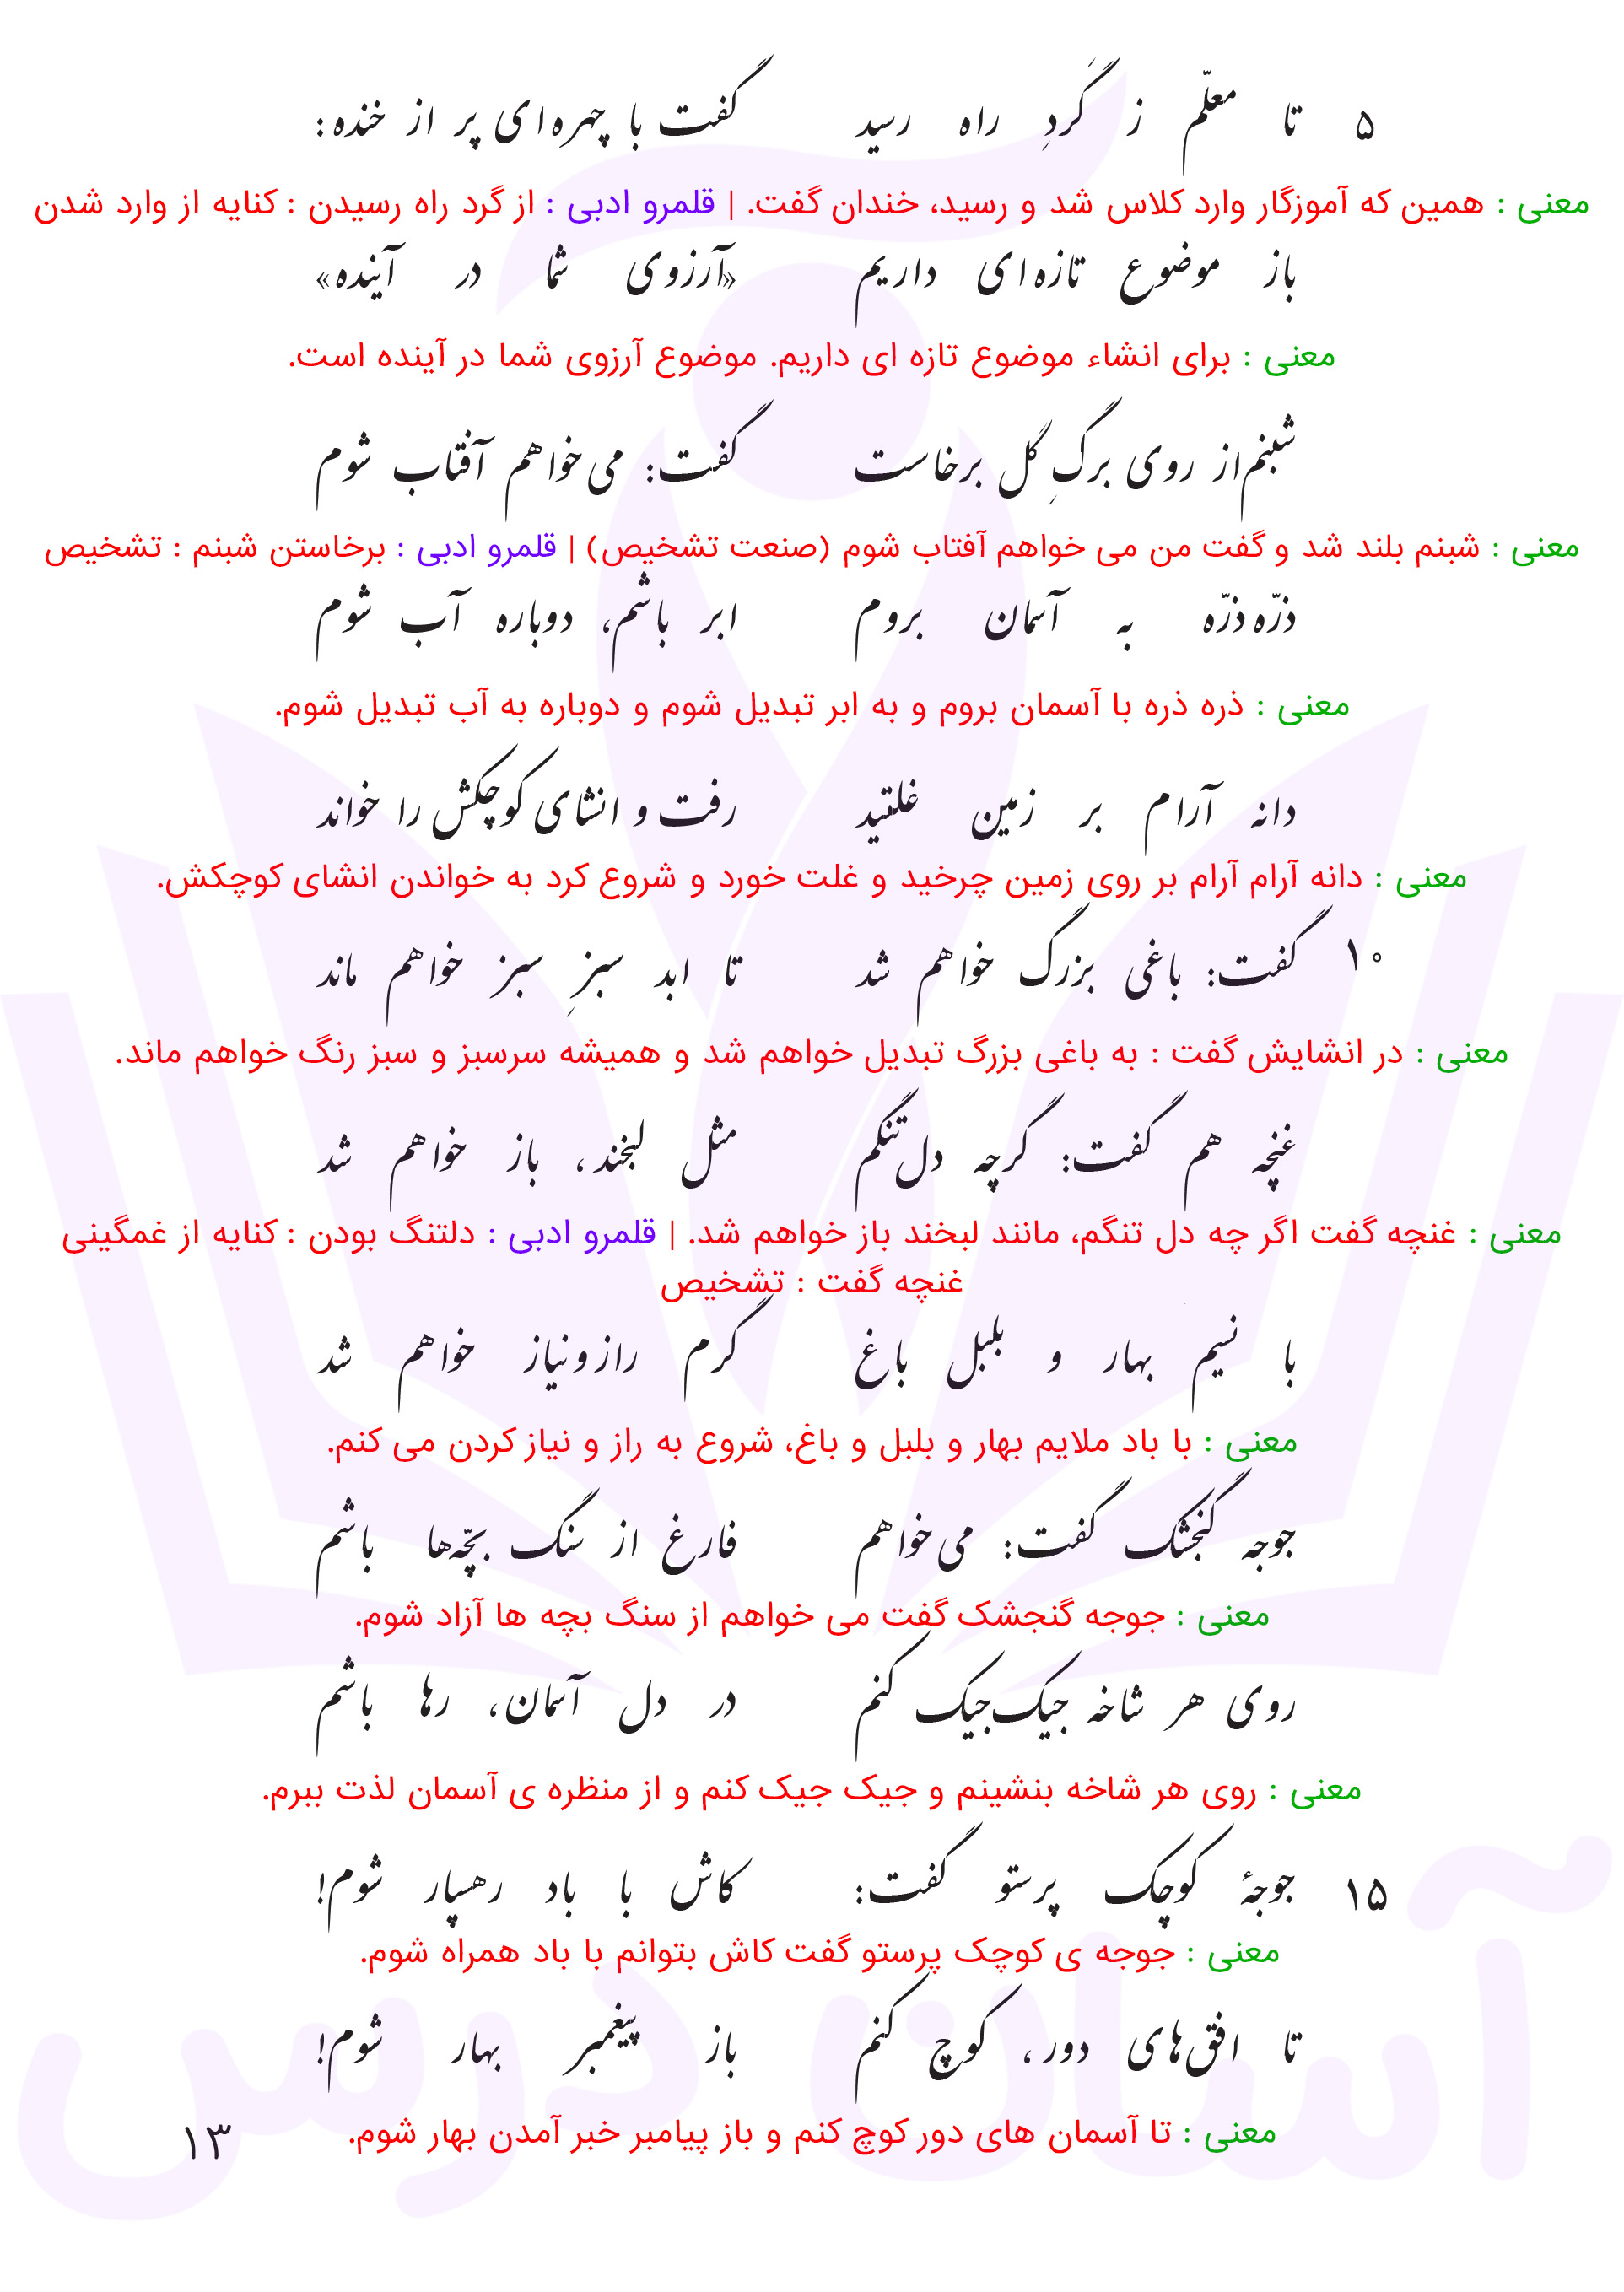 ۵ تا معلّم ز گَردِ راه رسید گفت با چهره‌ای پر از خنده:
معنی : همین که آموزگار وارد کلاس شد و رسید، خندان گفت. | قلمرو ادبی : از گرد راه رسیدن : کنایه از وارد شدن
باز موضوع تازه‌ای داریم «آرزوی شما در آینده»
معنی : برای انشاء موضوع تازه ای داریم. موضوع آرزوی شما در آینده است.
شبنم از روی برگِ گل برخاست گفت: می‌خواهم آفتاب شوم
معنی : شبنم بلند شد و گفت من می خواهم آفتاب شوم (صنعت تشخیص) | قلمرو ادبی : برخاستن شبنم : تشخیص
ذرّه ذرّه به آسمان بروم ابر باشم، دوباره آب شوم
معنی : ذره ذره با آسمان بروم و به ابر تبدیل شوم و دوباره به آب تبدیل شوم.
دانه آرام بر زمین غلتید رفت و انشای کوچکش را خواند
معنی : دانه آرام آرام بر روی زمین چرخید و غلت خورد و شروع کرد به خواندن انشای کوچکش.
۱۰ گفت: باغی بزرگ خواهم شد تا ابد سبزِ سبز خواهم ماند
معنی : در انشایش گفت : به باغی بزرگ تبدیل خواهم شد و همیشه سرسبز و سبز رنگ خواهم ماند.
غنچه هم گفت: گرچه دل‌تنگم مثل لبخند، باز خواهم شد
معنی : غنچه گفت اگر چه دل تنگم، مانند لبخند باز خواهم شد. | قلمرو ادبی : دلتنگ بودن : کنایه از غمگینی
غنچه گفت : تشخیص
با نسیم بهار و بلبل باغ گرم راز و نیاز خواهم شد
معنی : با باد ملایم بهار و بلبل و باغ، شروع به راز و نیاز کردن می کنم.
جوجه گنجشک گفت: می‌خواهم فارغ از سنگ بچّه‌ها باشم
معنی : جوجه گنجشک گفت می خواهم از سنگ بچه ها آزاد شوم.
روی هر شاخه جیک‌جیک کنم در دل آسمان، رها باشم
معنی : روی هر شاخه بنشینم و جیک جیک کنم و از منظره ی آسمان لذت ببرم.
۱۵ جوجهٔ کوچک پرستو گفت: کاش با باد رهسپار شوم!
معنی : جوجه ی کوچک پرستو گفت کاش بتوانم با باد همراه شوم.
تا افق‌های دور، کوچ کنم باز پیغمبر بهار شوم!
معنی : تا آسمان های دور کوچ کنم و باز پیامبر خبر آمدن بهار شوم.
۱۳
آسان درس